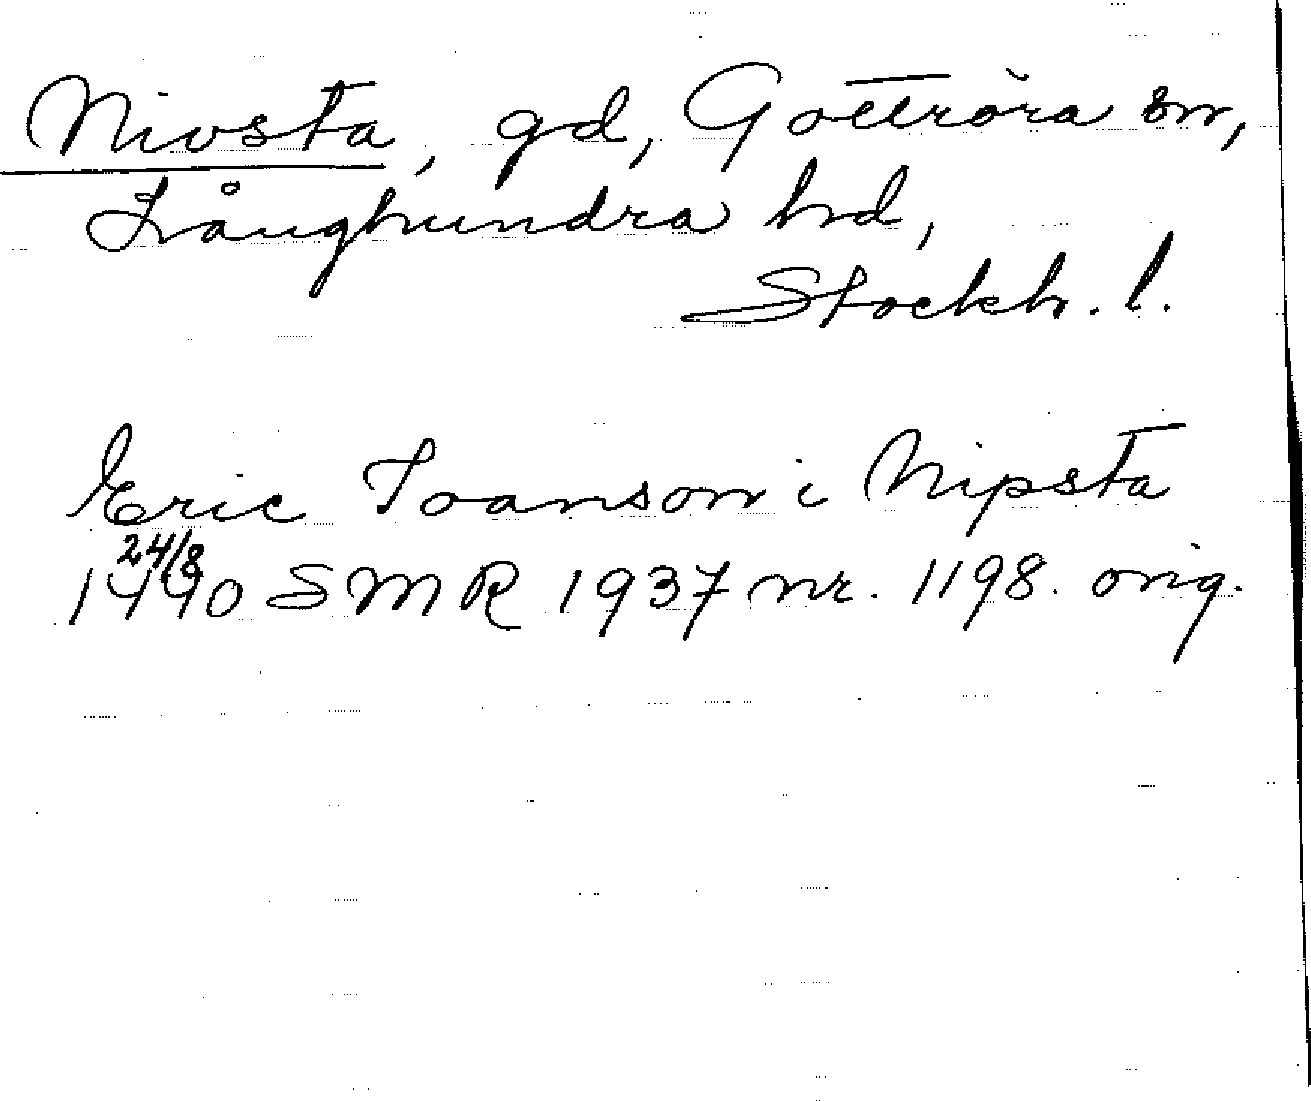 Nivsta, gd, Gottröra sn,
Långhundra hd,
Stockh. l.
Eric Joansson i Nipsta
24/8
1490 SMR 1937 nr. 1198. orig.